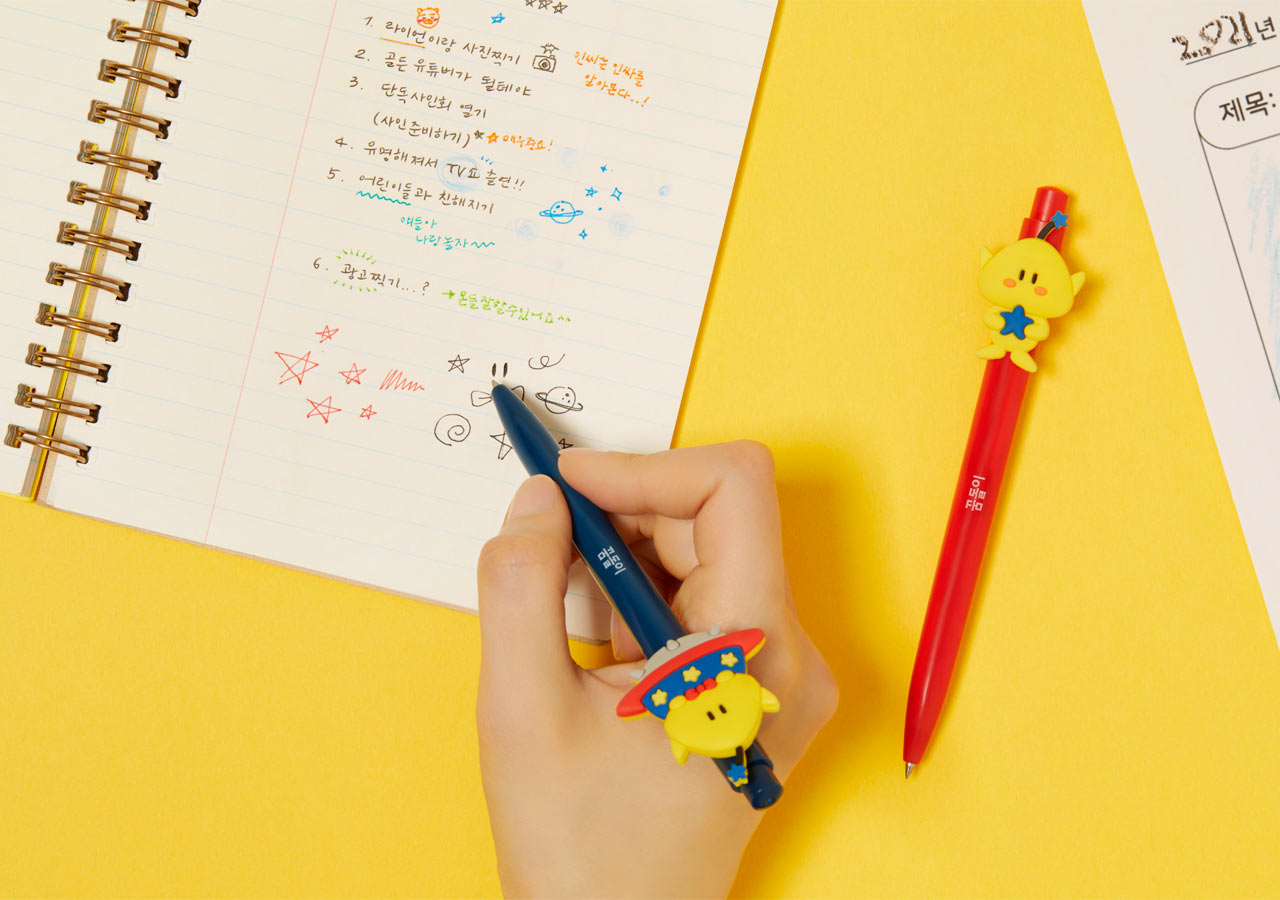 1. 라이언이랑 사진찍기
인싸는 인싸를
알아본다..!
2. 골든 유튜버가 될테야
3. 단독사인회 열기
(사인준비하기) 매우중요!
4. 유명해져서 TV쇼 출연!!
5. 어린이들과 친해지기
얘들아
나랑놀자
6. 광고찍기...?
뭔들잘할수있어요^^
꿈돌이
꿈돌이
2021년
제목: